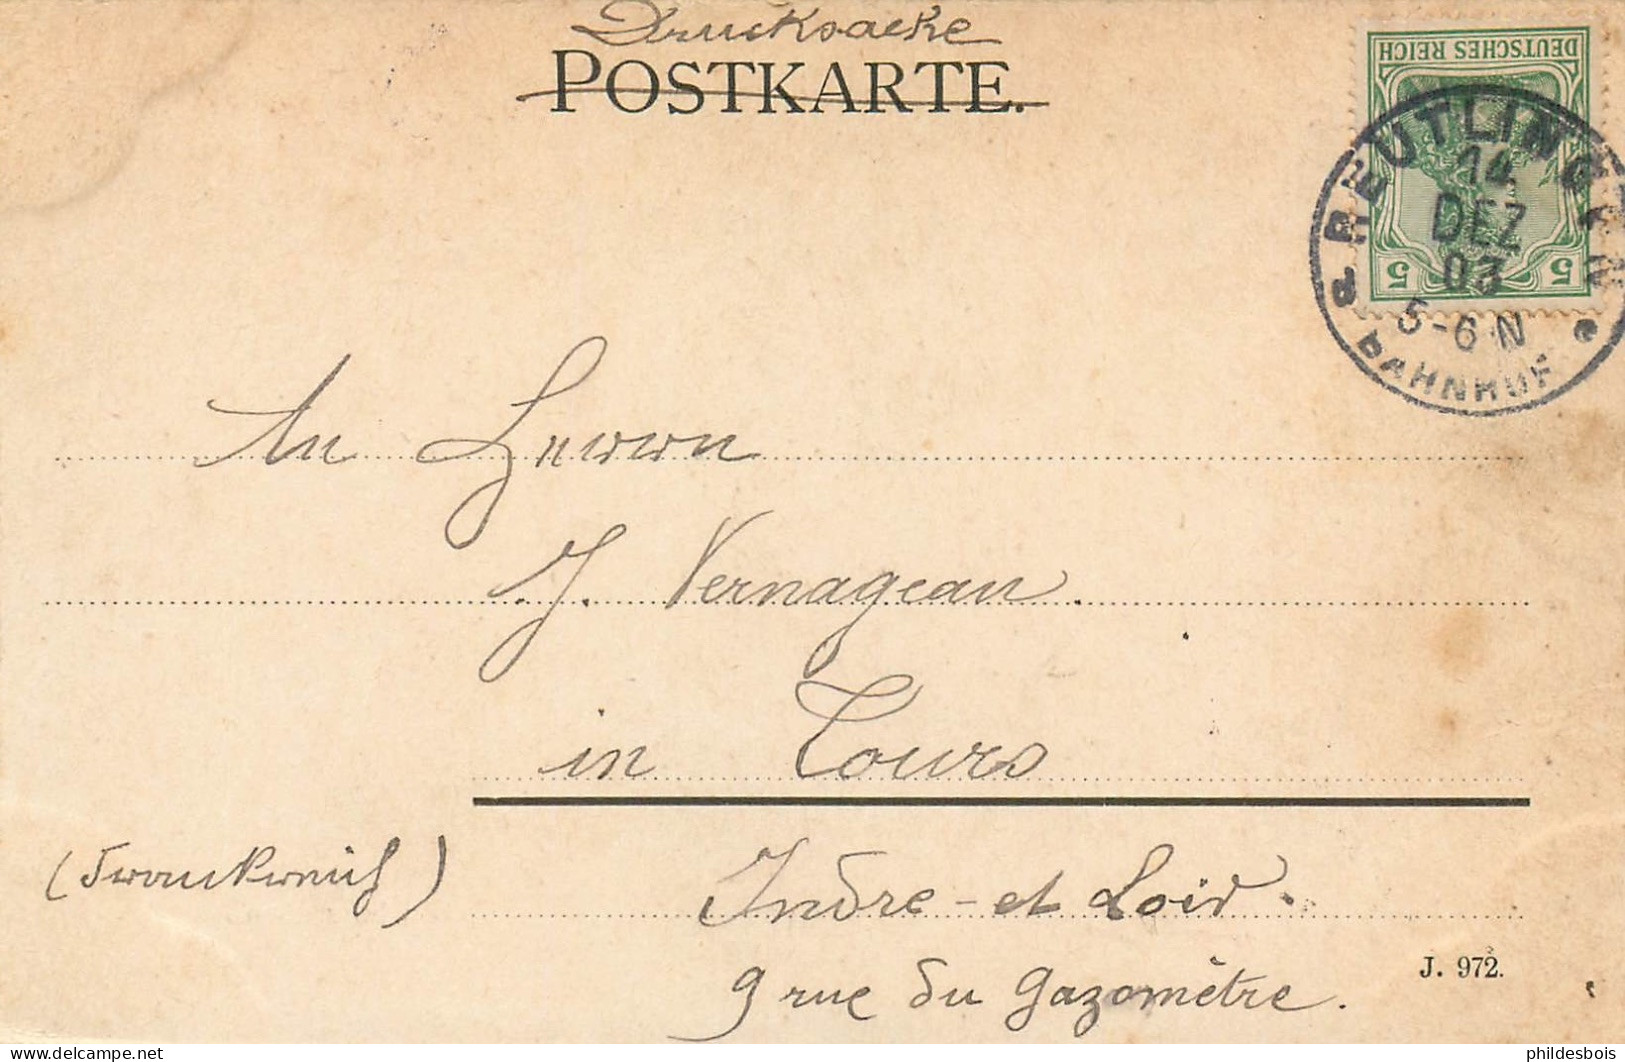 Drucksache
POSTKARTE.
DEUTSCHES REICH
5 5
REUTLINGEN
14
DEZ
03
5-6 N
BAHNHOF
An Herrn
J. Vernageau.
in Tours
(Frankreich)
Indre-et Loir.
9 rue du Gazomètre.
J. 972.
phildesbois